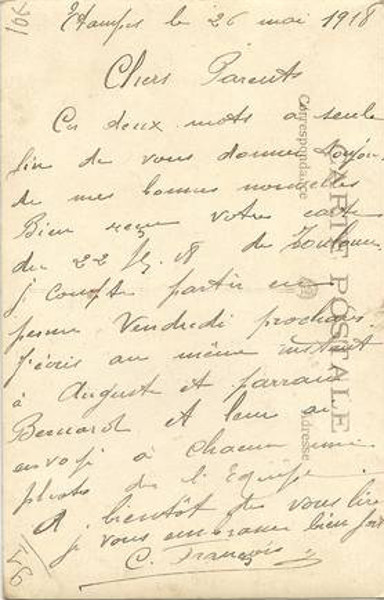 Etampes le 26 mai 1918
Chers Parents
Ces deux mots a seule
fin de vous donner toujours
de mes bonnes nouvelles
Bien reçue votre carte
du 22 de Toulouse
je compte partir en
perme Vendredi prochain.
J'écris au même instant
à Auguste et parrain
Bernard et leur ai
envoyé à chacun une
photo de l'Equipe.
A bientôt de vous lire
je vous embrasse bien fort
C. François
CARTE POSTALE
Correspondance
Adresse